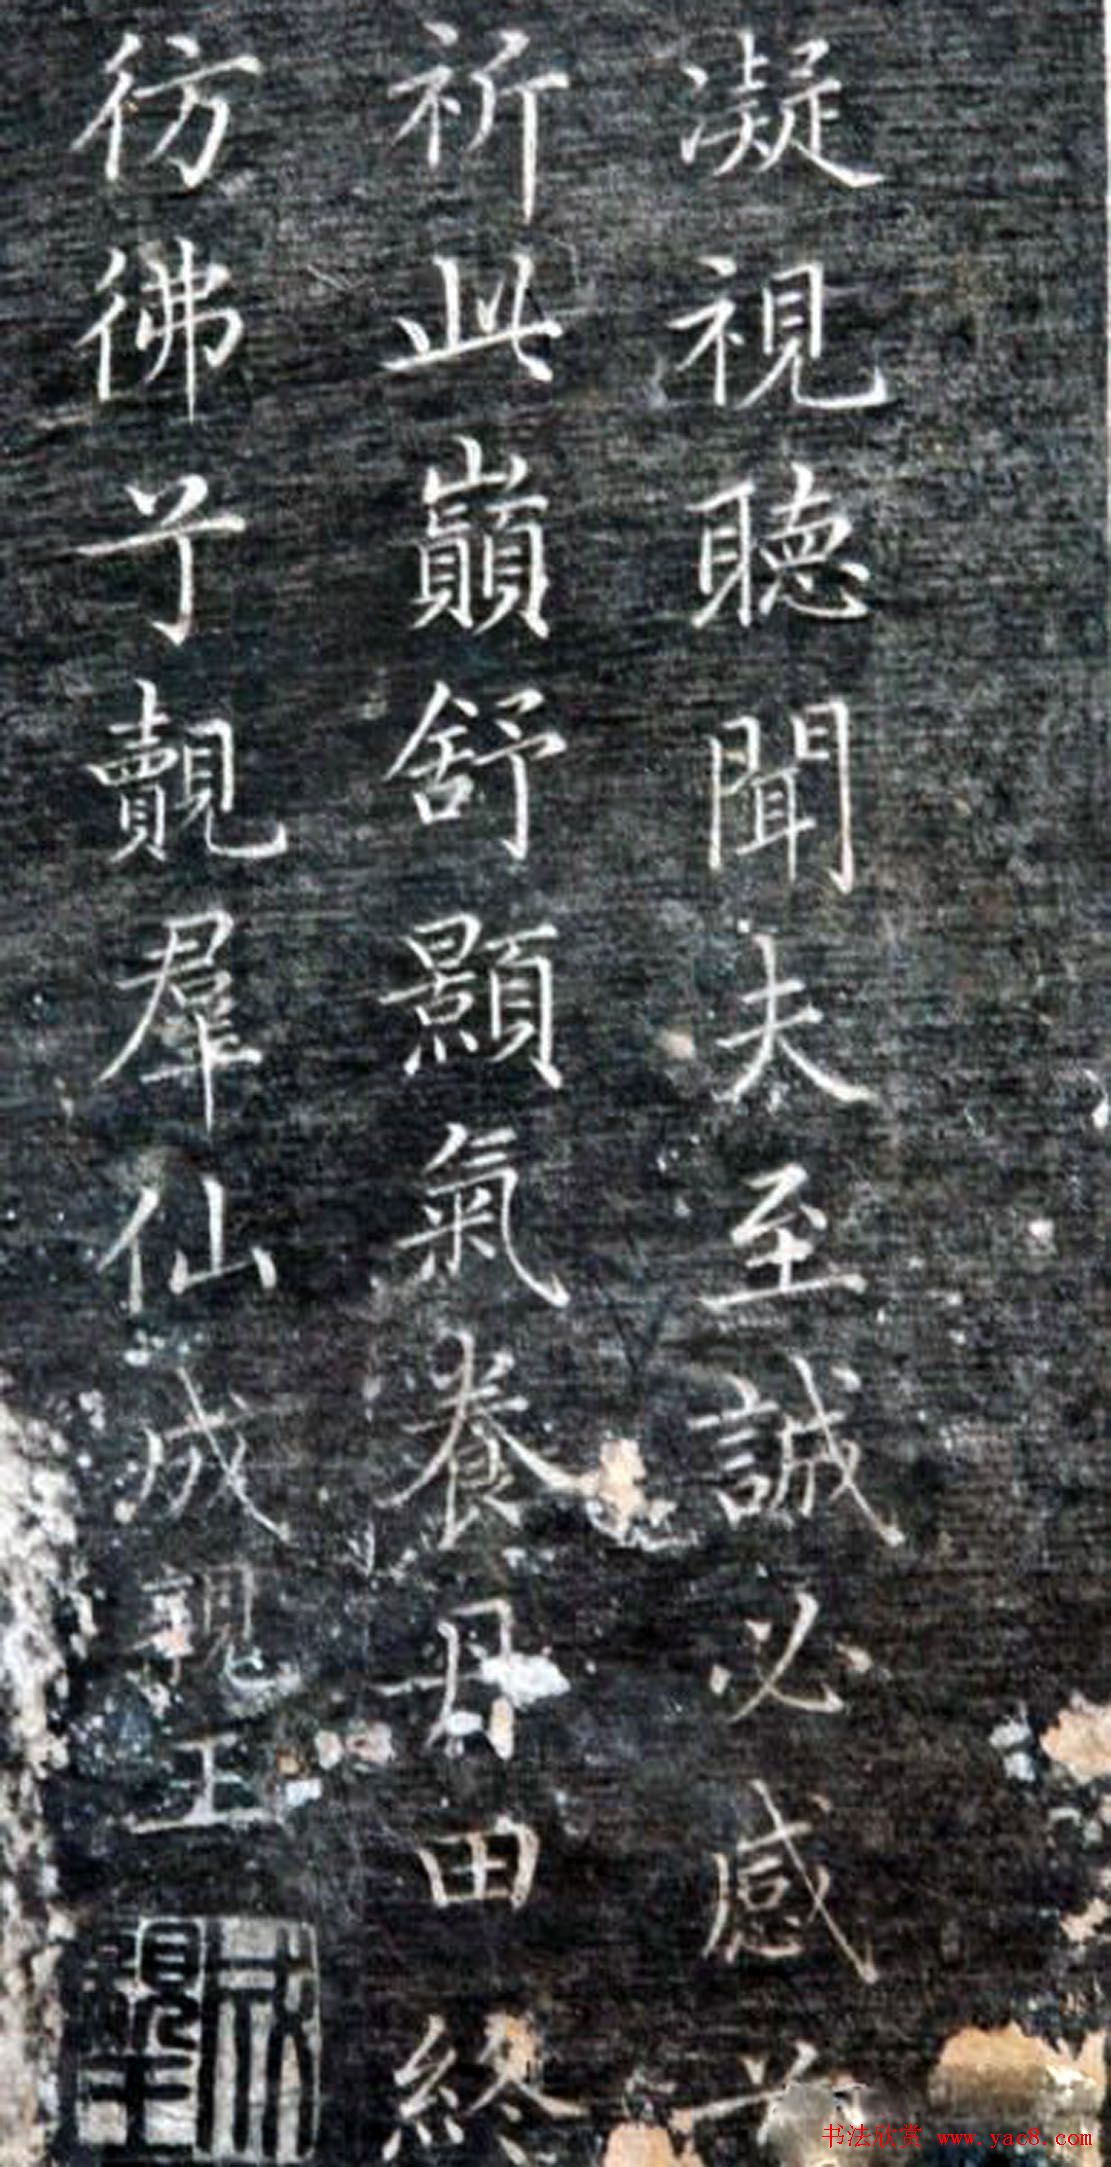 凝視聽聞夫至誠必感兮
祈此巔舒顥氣養丹田終
彷彿兮覿羣仙成親王
成親王
书法欣赏 www.yac8.com